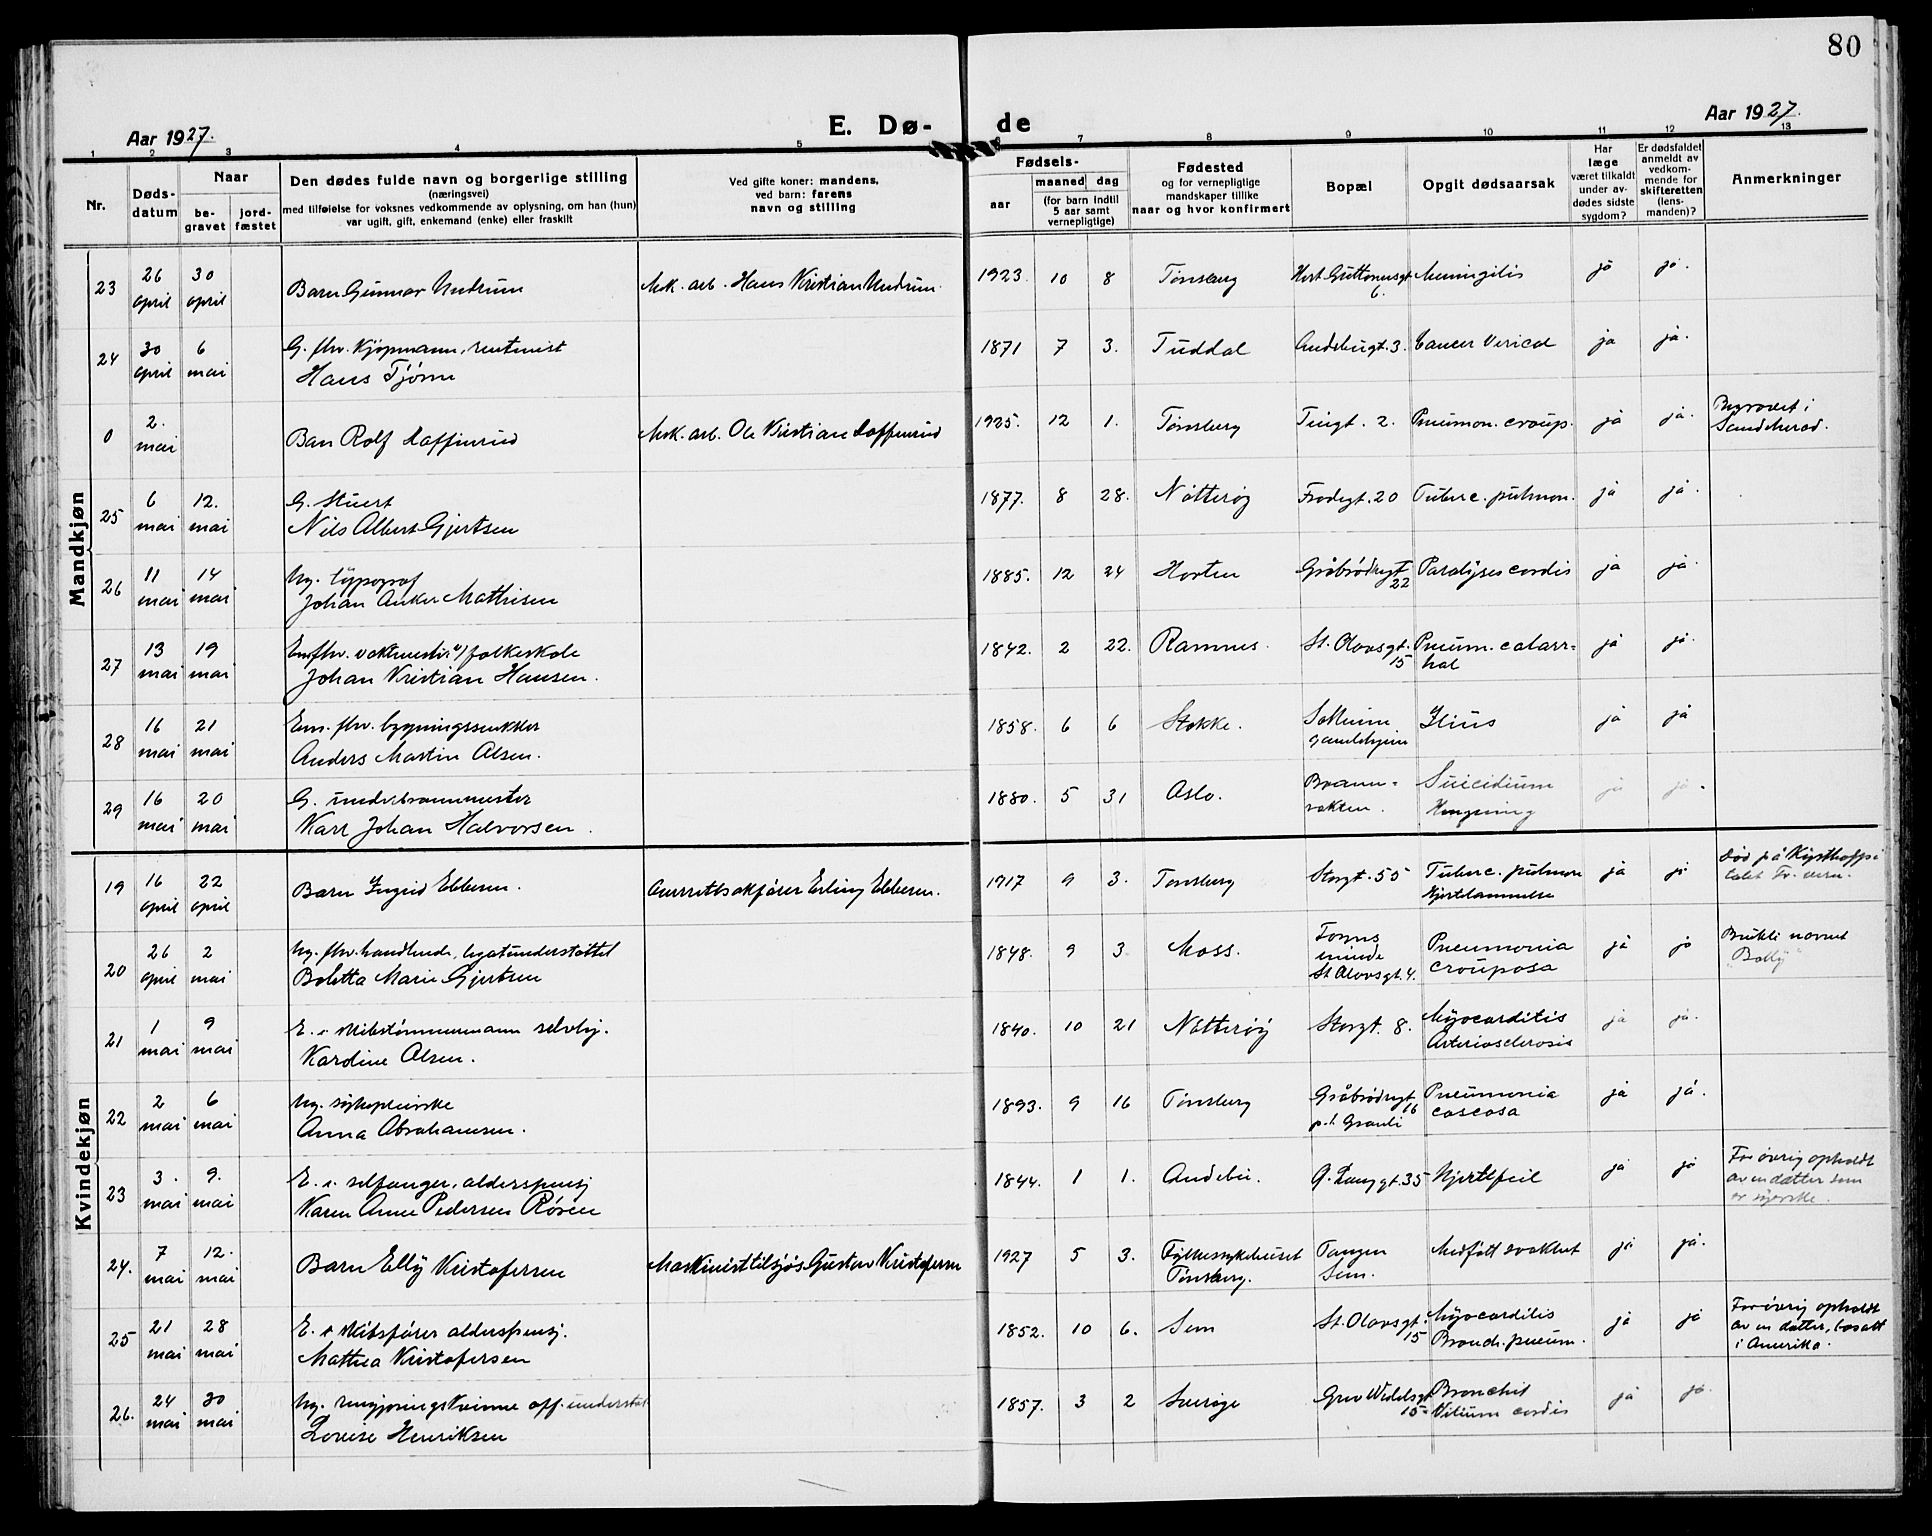 80
Aar 1927.
E. Dø-
de
Aar 1927.
1 2 3 4 5 6 7 8 9 10 11 12 13
Nr.
Døds-
datum
Naar
be-
gravet
jord-
fæstet
Den dødes fulde navn og borgerlige stilling
(næringsvei)
med tilføielse for voksnes vedkommende av oplysning, om han (hun)
var ugift, gift, enkemand (enke) eller fraskilt
Ved gifte koner: mandens,
ved barn: farens
navn og stilling
Fødsels-
aar
maaned dag
(for barn indtil
5 aar samt
vernepligtige)
Fødested
og for vernepligtige
mandskaper tillike
naar og hvor konfirmert
Bopæl
Opgit dødsaarsak
Har
læge
været tilkaldt
under av-
dødes sidste
sygdom?
Er dødsfaldet
anmeldt av
vedkom-
mende for
skifteretten
(lens-
manden)?
Anmerkninger
Mandkjøn
23 26 april 30 april Barn Gunnar Undrum Mek. arb. Hans Kristian Undrum. 1923. 10 8 Tønsberg 6. Meningitis ja ja.
24 30 april 6 mai G. fhv. kjøpmann, rentenist
Hans Tjørn 1871 7 3. Tuddal Andebugt. 3. Cancer Vesicae ja ja.
0 2. mai Barn Rolf Hoffenrud Mek. arb. Ole Kristian Hoffenrud 1925. 12 1. Tønsberg Tingt. 2. Pneumon. croup. ja ja. Begravet i
Sandeherad.
25 6 mai 12. mai G. Stuert
Nils Albert Gjertsen 1877. 8 28. Nøtterøy Frodegt. 20 Tuberc. pulmon. ja ja.
26 11 mai 14 mai Ug. typograf
Johan Anker Mathisen 1885. 12 24 Horten Gråbrødregt.
22 Paralyses cordis ja ja.
27 13 mai 19 mai Em. fhv. vaktmester v/ folkeskole
Johan Kristian Hansen. 1842. 2 22. Ramnes. St. Olavsgt.
15 Pneum. catarr=
hal ja ja.
28 16 mai 21 mai Em. fhv. bygningssnekker
Anders Martin Olsen. 1858. 6 6 Stokke. Solheim
gamlehjem Ileus ja ja
29 16 mai 20 mai G. underbrannmester
Karl Johan Halvorsen. 1880. 5 31 Oslo. Brann-
vakten. Suicidium
Hengning ja ja.
Kvindekjøn
19 16 april 22 april Barn Ingrid Ebbesen. Overrettssakfører Erling Ebbesen. 1917 9 3. Tønsberg Storgt. 55 Tuberc. pulmon
Hjertelammelse ja ja Død på Kysthospi
talet
20 26 april 2 mai Ug. fhv. handlende, legatunderstøttet
Boletta Marie Gjertsen 1848. 9 3 Moss. Foyns
minde
St. Olavsgt. 4. Pneumonia
crouposa ja ja Brukte navnet
"Bolly"
21 1 mai 9 mai E. e. skibstømmermann selvhj.
Kardine Olsen. 1840. 10 21 Nøtterøy Storgt. 8. Myocarditis
Arteriosclerosis ja ja.
22 2 mai 6 mai Ug. sykepleierske
Anna Abrahamsen. 1893. 9 16 Tønsberg Gråbrødregt.
16
p.t. Granli Pneumonia
caseosa ja ja.
23 3. mai 9. mai E. e. selfanger, alderspensj
Karen Anne Pedersen Røsen 1844. 1 1. Andebu. G. Langgt. 35 Hjertefeil ja ja Forøvrig opholdt
av en datter som
er syerske.
24. 7 mai 12. mai Barn Elly Kristofersen Maskinist tilsjøs Gustav Kristofersen 1927 5 3. Fylkessykehuset
Tønsberg. Tangen
Sem. Medfødt svakhet ja ja.
25 21 mai 28 mai E. e. skibsfører alderspensj.
Mathea Kristofersen 1852. 10 6. Sem St. Olavsgt.
15 Myocarditis
Bronch. pneum. ja ja Forøvrig opholdt
av en datter, bosatt
i Amerika.
26. 24 mai 30 mai Ug. rengjøringskvinne off. understøt
Lovise Henriksen 1857. 3 2 Sverige Grev Wedelsgt
15 Bronchit
Vitium cordis ja ja.